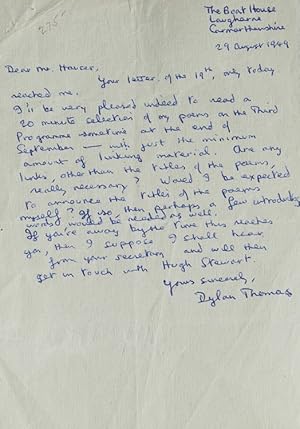 The Boat House
Laugharne
Carmarthenshire
29 August 1949
Dear Mr. 
Your letter, of the 19th, only today
reached me.
I'll be very pleased indeed to read a
20 minute selection of my poems on the Third
Programme sometime at the end of
September — with just the minimum
amount of linking material. Are any
links, other than the titles of the poems,
really necessary? Would I be expected
to announce the titles of the poems
myself? If so, then perhaps a few introductory
words would be needed as well.
If you're away by the time this reaches
you, then I suppose I shall hear
from your secretary and will then
get in touch with Hugh Stewart.
Yours sincerely,
Dylan Thomas